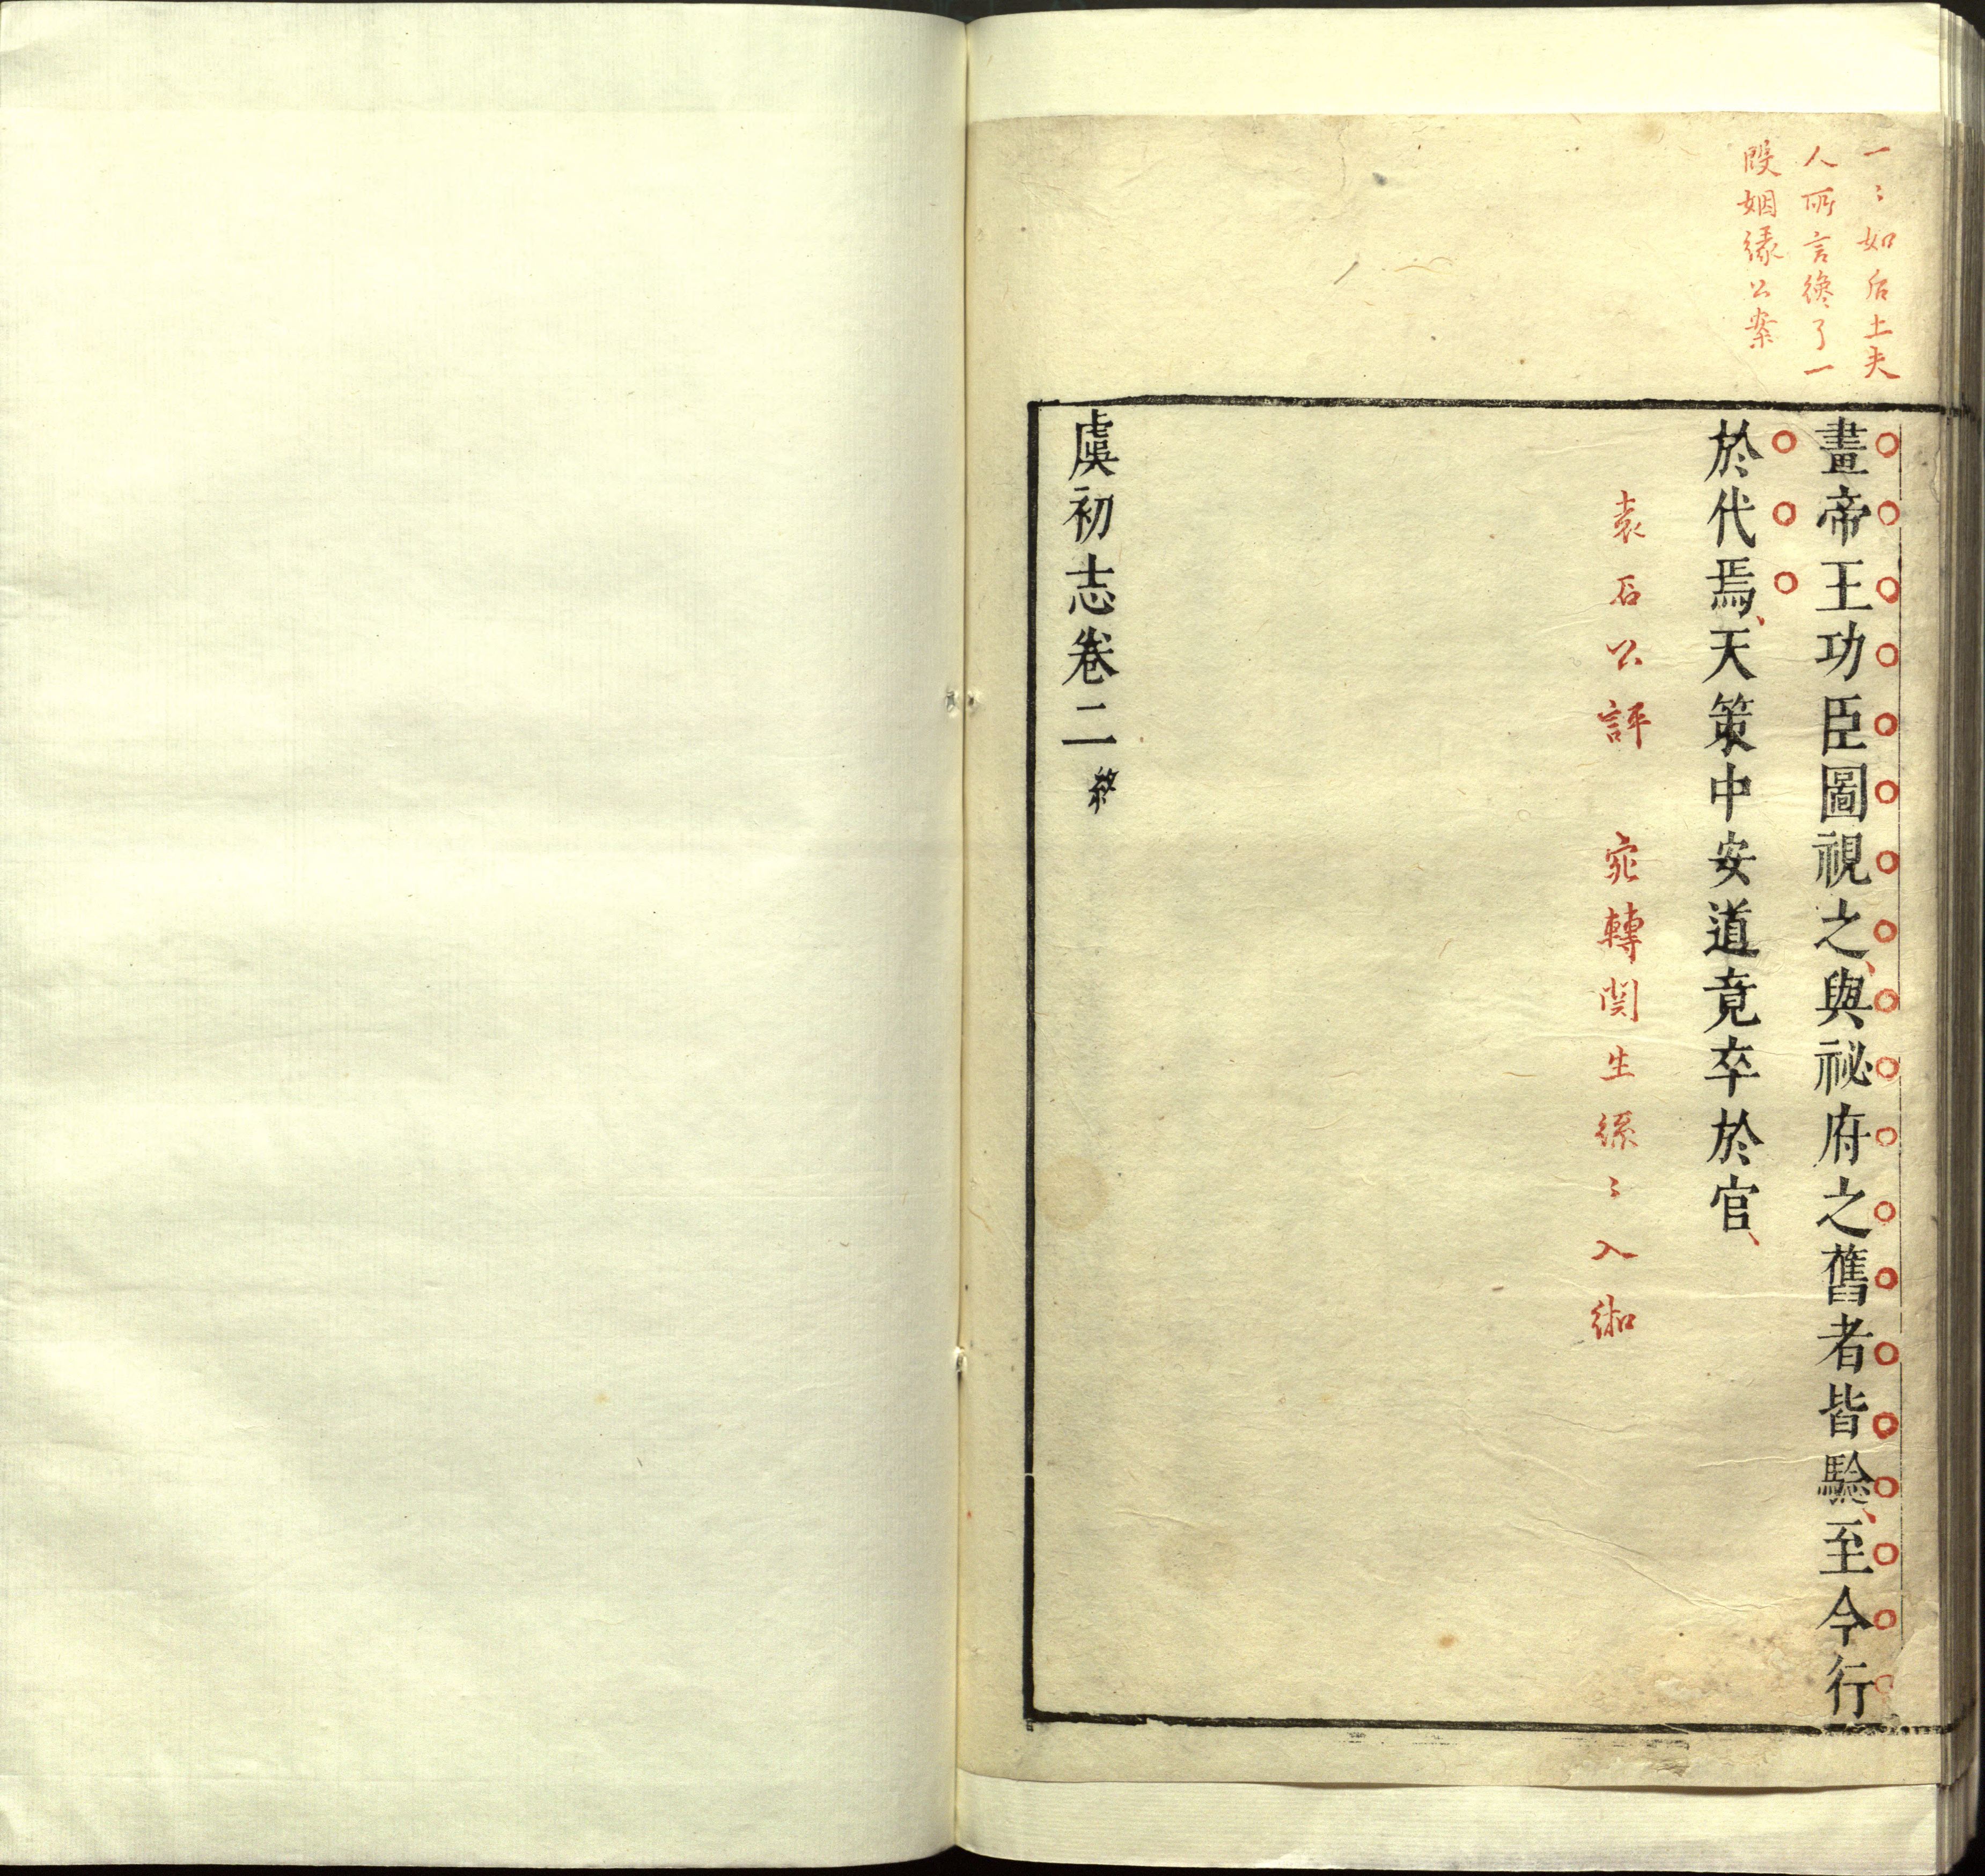 一〻如后土夫
人所言纔了一
段姻緣公案
畫帝王功臣圖視之與祕府之舊者皆驗至今行
於代焉天策中安道竟卒於官
袁石公評　宛轉関生絲〻入
虞初志卷二終